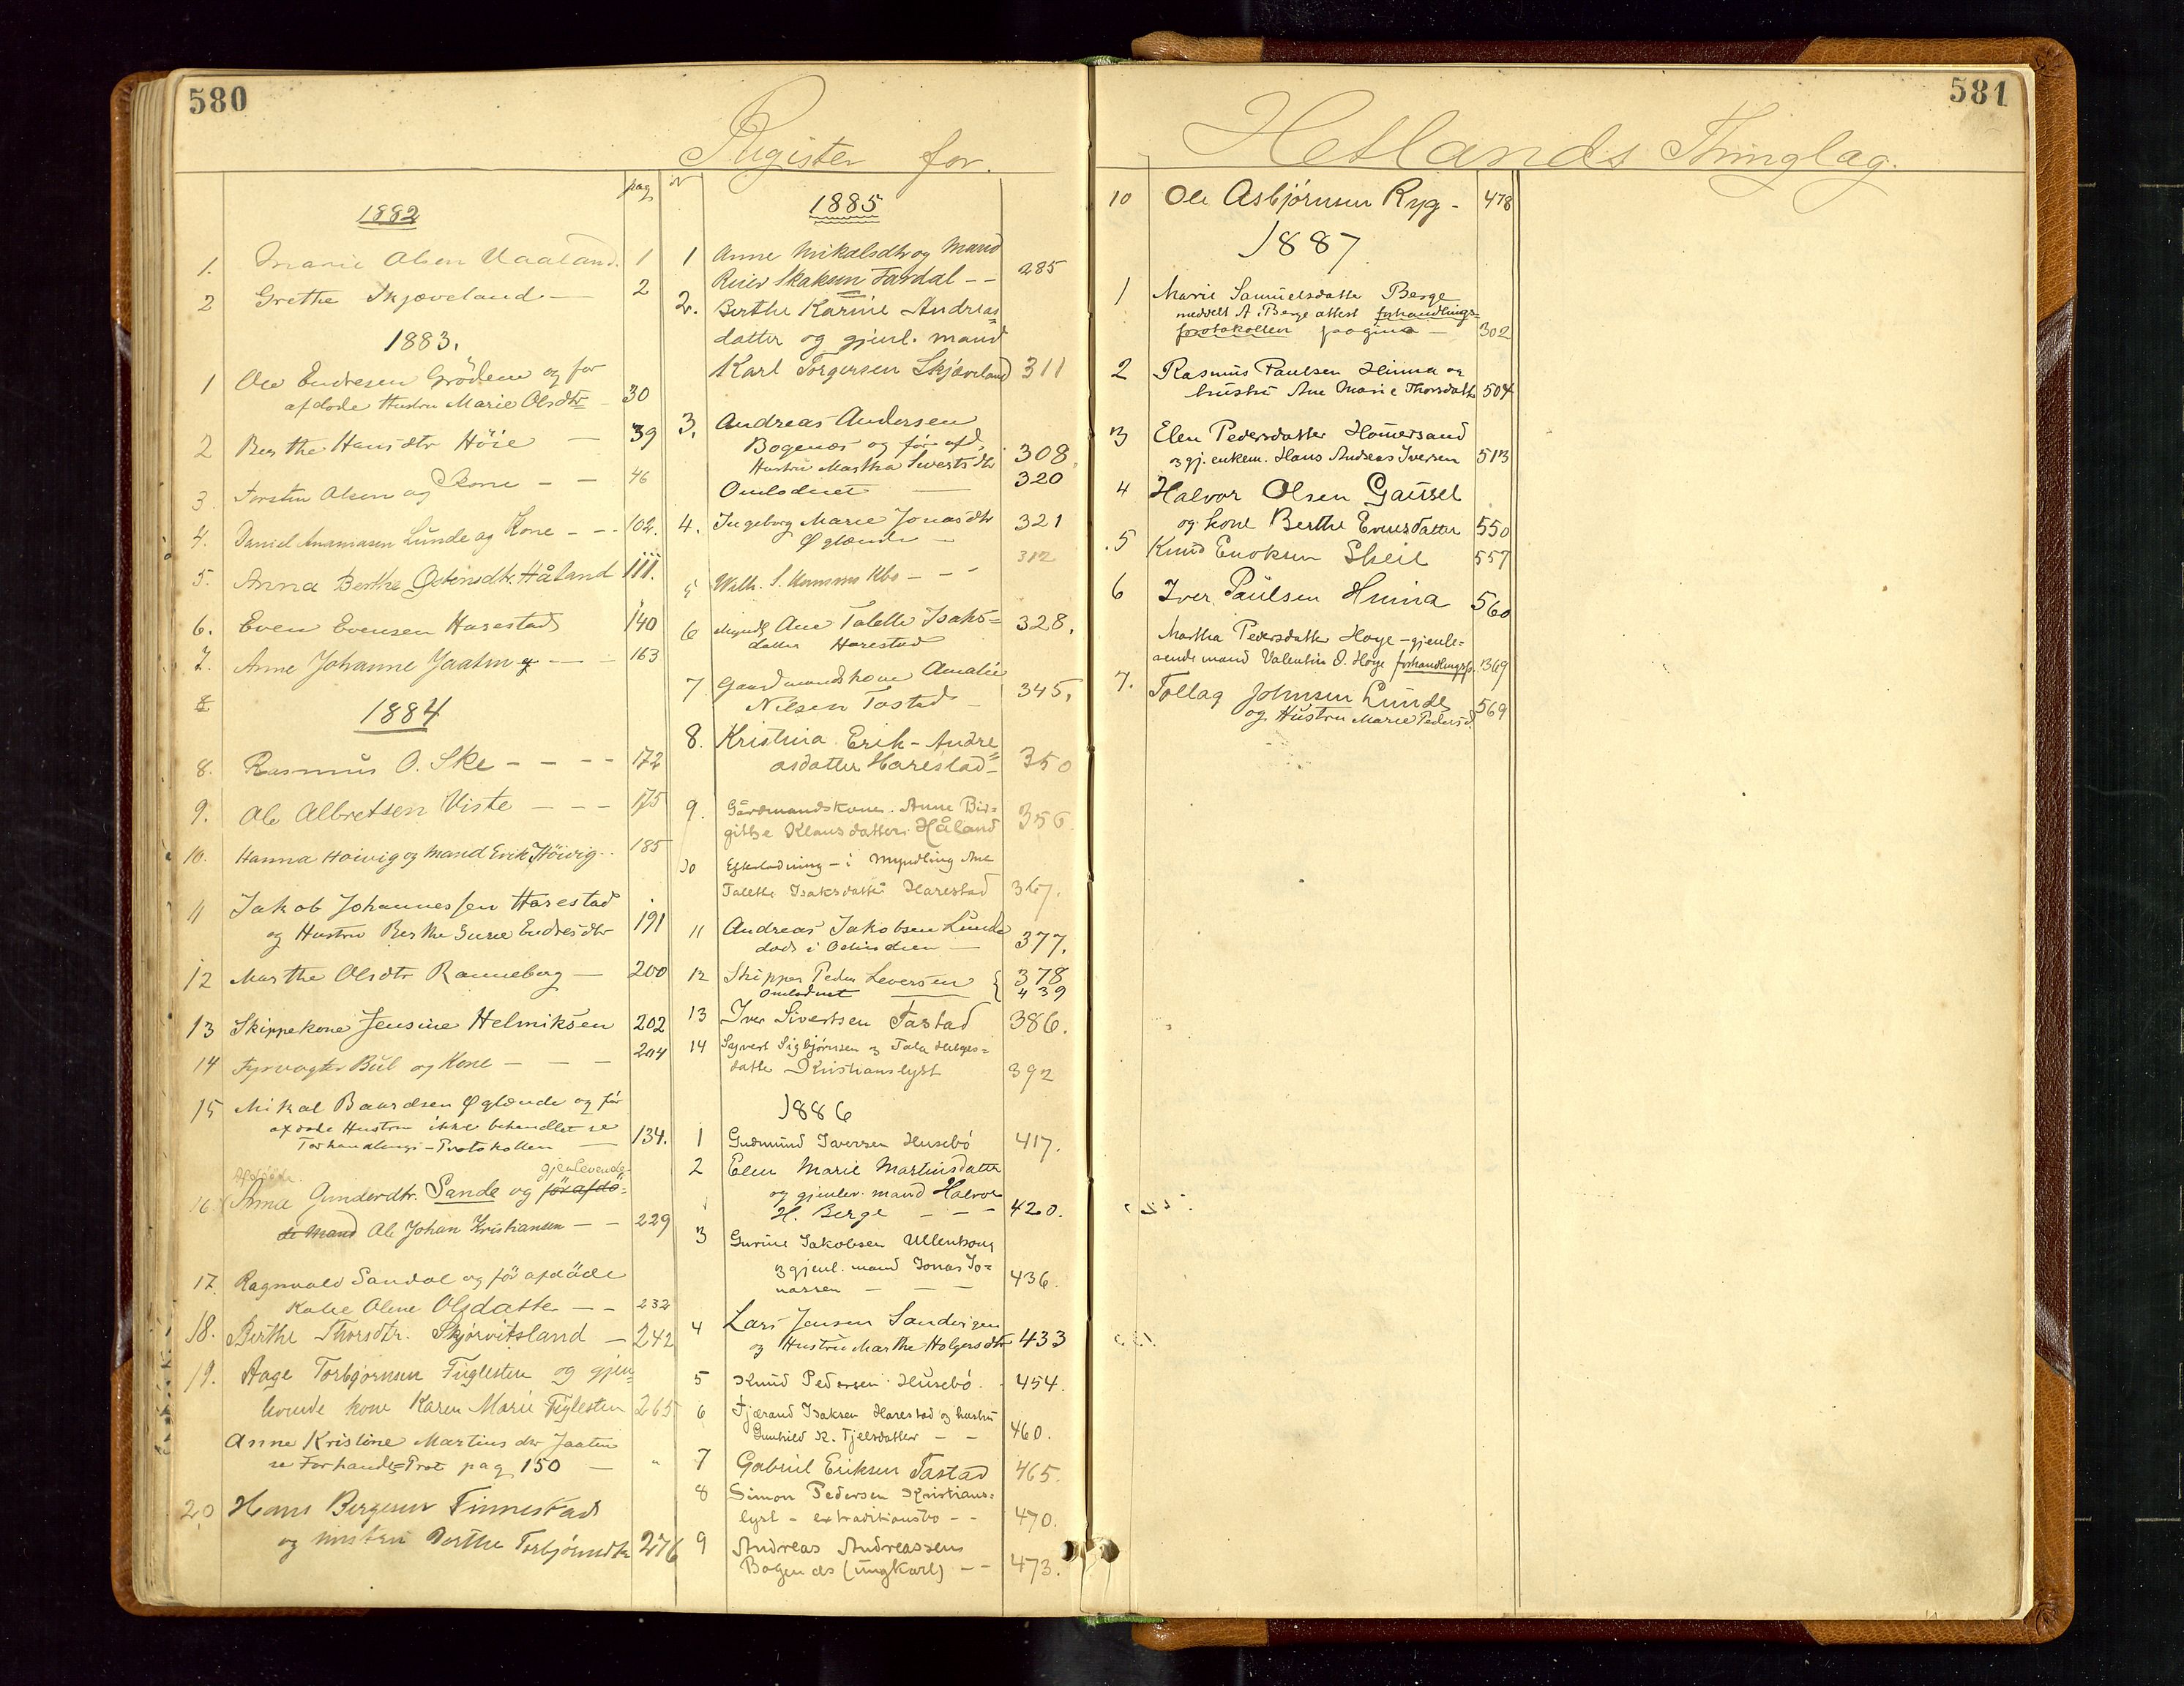 580
Register for
pag
1882
1. Marie Olsen Vaaland. 1
2 Grethe Skjæveland — 2
1883.
1 Ole Endresen Grödem og før
afdøde Hustru Marie Olsdtr 30
2 Berthe Hansdtr Höie — 39
3. Torsten Olsen og Kone – – 46
4. Daniel Ananiasen Lunde og Kone – – 102.
5. Anna Berthe Håland 111.
6. Even Evensen Harestad 140
7. Anne Johanne Jaatun — – 163
8
1884
8. Rasmus O. Ske – – – – 172
9. Ole Albretsen Viste – – – 175
10. Hanna Hoivig og Mand Erik Höivig 185
11 Jakob Johannessen Harestad
og Hustru Berthe Surie Endresdtr 191
12 Marthe Olsdtr Ranneberg — 200
13 Skipperkone Jensine Helmiksen 202
14 Fyrvogter Bül og Kone – – – 204
15 Mikal Baardsen Øglænde og før
afdøde Hustru ikke behandlet se
Forhandlings-Protokollen — 134.
Afdøde gjenlevende
16. Anna Gunderdtr. Sande og før afdø-
de Mand Ole Johan Kristiansen – – 229
17. Ragnvald Sandal og för afdöde
Kone Olene Olsdatter – – 232
18. Berthe Thorsdtr. Skjörvitsland – 242
19. Aage Torbjørnsen Fuglesten og gjen-
levende kone Karen Marie Fuglesten 265
Anne Kristine Martins dtr Jaaten
se Forhandl=Prot pag 150 — "
20 Hans Bergesen Finnestad
og hustru Berthe Torbjörnsdtr 276
1885
1 Anne Mikalsdtr og Mand
Reier Skaksen Tardal – – 285
2. Berthe Karine Andreas=
datter og gjenl. mand
Karl Torgersen Skjæveland 311
3. Andreas Andersen
Bogenæs og før afd.
Hustru Martha Sivertsdtr 308
Omlodnet — 320
4. Ingeborg Marie Jonasdtr 321
Øglænde –
5 Wilh. S. – – – 312
6 Myndl. Ane Talette Isaks=
datter Harestad 328.
7 Gaardmandskone Amalie
Nilsen Tastad – 345.
8. Kristina Erik-Andre
asdatter Harestad – 350
9. Gårdmandskone Anne Bir=
githe Klausdatter Håland 356
10 Efterlodning – i Myndling Ane
Talette Isaksdatter Harestad 367.
11 Andreas Jakobsen Lunde
død i Ostindien — 377.
12 Skipper Peder Seversen { 378
Omlodnet 439
13 Iver Sivertsen Tastad 386.
14 Syvert Sigbjørnsen og Tala Helges=
datter Kristianslyst 392
1886
1 Gudmund Iversen Husebö 417.
2 Elen Marie Martinsdatter
og gjenlev. mand Halvor
H. Berge – – – 420.
3 Gurine Jakobsen Ullenhoug
og gjenl. mand Jonas Jo=
nassen – – – 436.
4 Lars Jensen Sandvigen
og Hustru Marthe Holgersdtr 433
5 Knud Pedersen Husebö. 454.
6 Fjærand Isaksen Harestad og hustru
Gunhild K. Fjelsdatter – – 460.
7 Gabriel Eriksen Tastad 465.
8 Simon Pedersen Kristians=
lyst – extraditionsbo – – 470.
9 Andreas Andreassen
Bogenæs (ungkarl) – – 473.
581
Hetlands Thinglag.
10 Ole Asbjörnsen Ryg – 478
1887
1 Marie Samuelsdatter Berge
meddelt A. Berge attest forhandlings=
protokollen pagina – 302
2 Rasmus Paulsen Hinna og
hustru Ane Marie Thorsdatter 504
3 Elen Pedersdatter Homersand
og gj. enkem. Hans Andreas Iversen 513
4 Halvor Olsen Gausel
og kone Berthe Eversdatter 550
5 Knud Enoksen Skeil 557
6 Iver Paulsen Hinna 560
Martha Pedersdatter Hoye – gjenle=
vende mand Valentin O. Hoye forhandlingsp. 369
7. Tollag Johnsen Lunde
og Hustru Marie Pedersd. 569